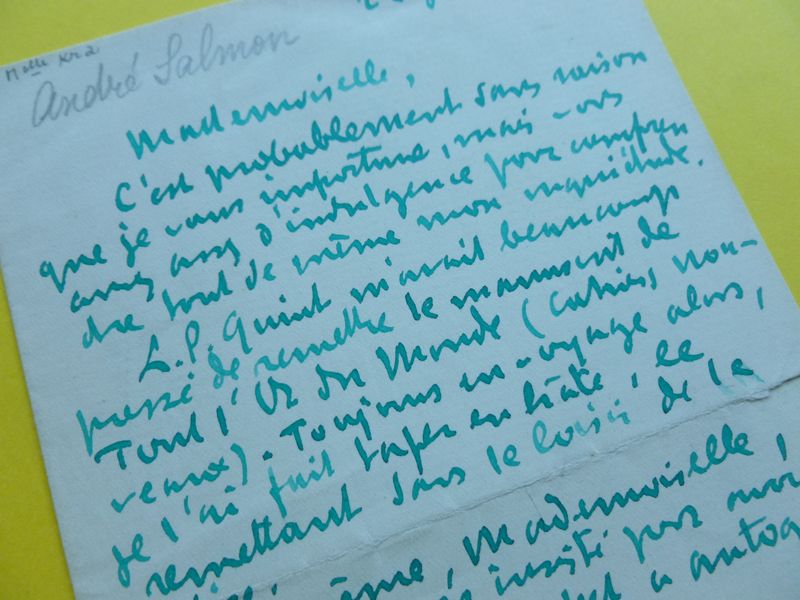 Mlle Kra
André Salmon
Mademoiselle,
C'est probablement sans raison
que je vous importune, mais vous
avez assez d'indulgence pour compren
dre tout de même mon inquiétude.
L.P. Quint m'avait beaucoup
pressé de remettre le manuscrit de
Tout l'Or du Monde (Cahiers nou-
veaux). Toujours en voyage alors,
je l'ai fait taper en hâte, le
remettant sans le loisir de le
même, Mademoiselle,
insisté pour avoir